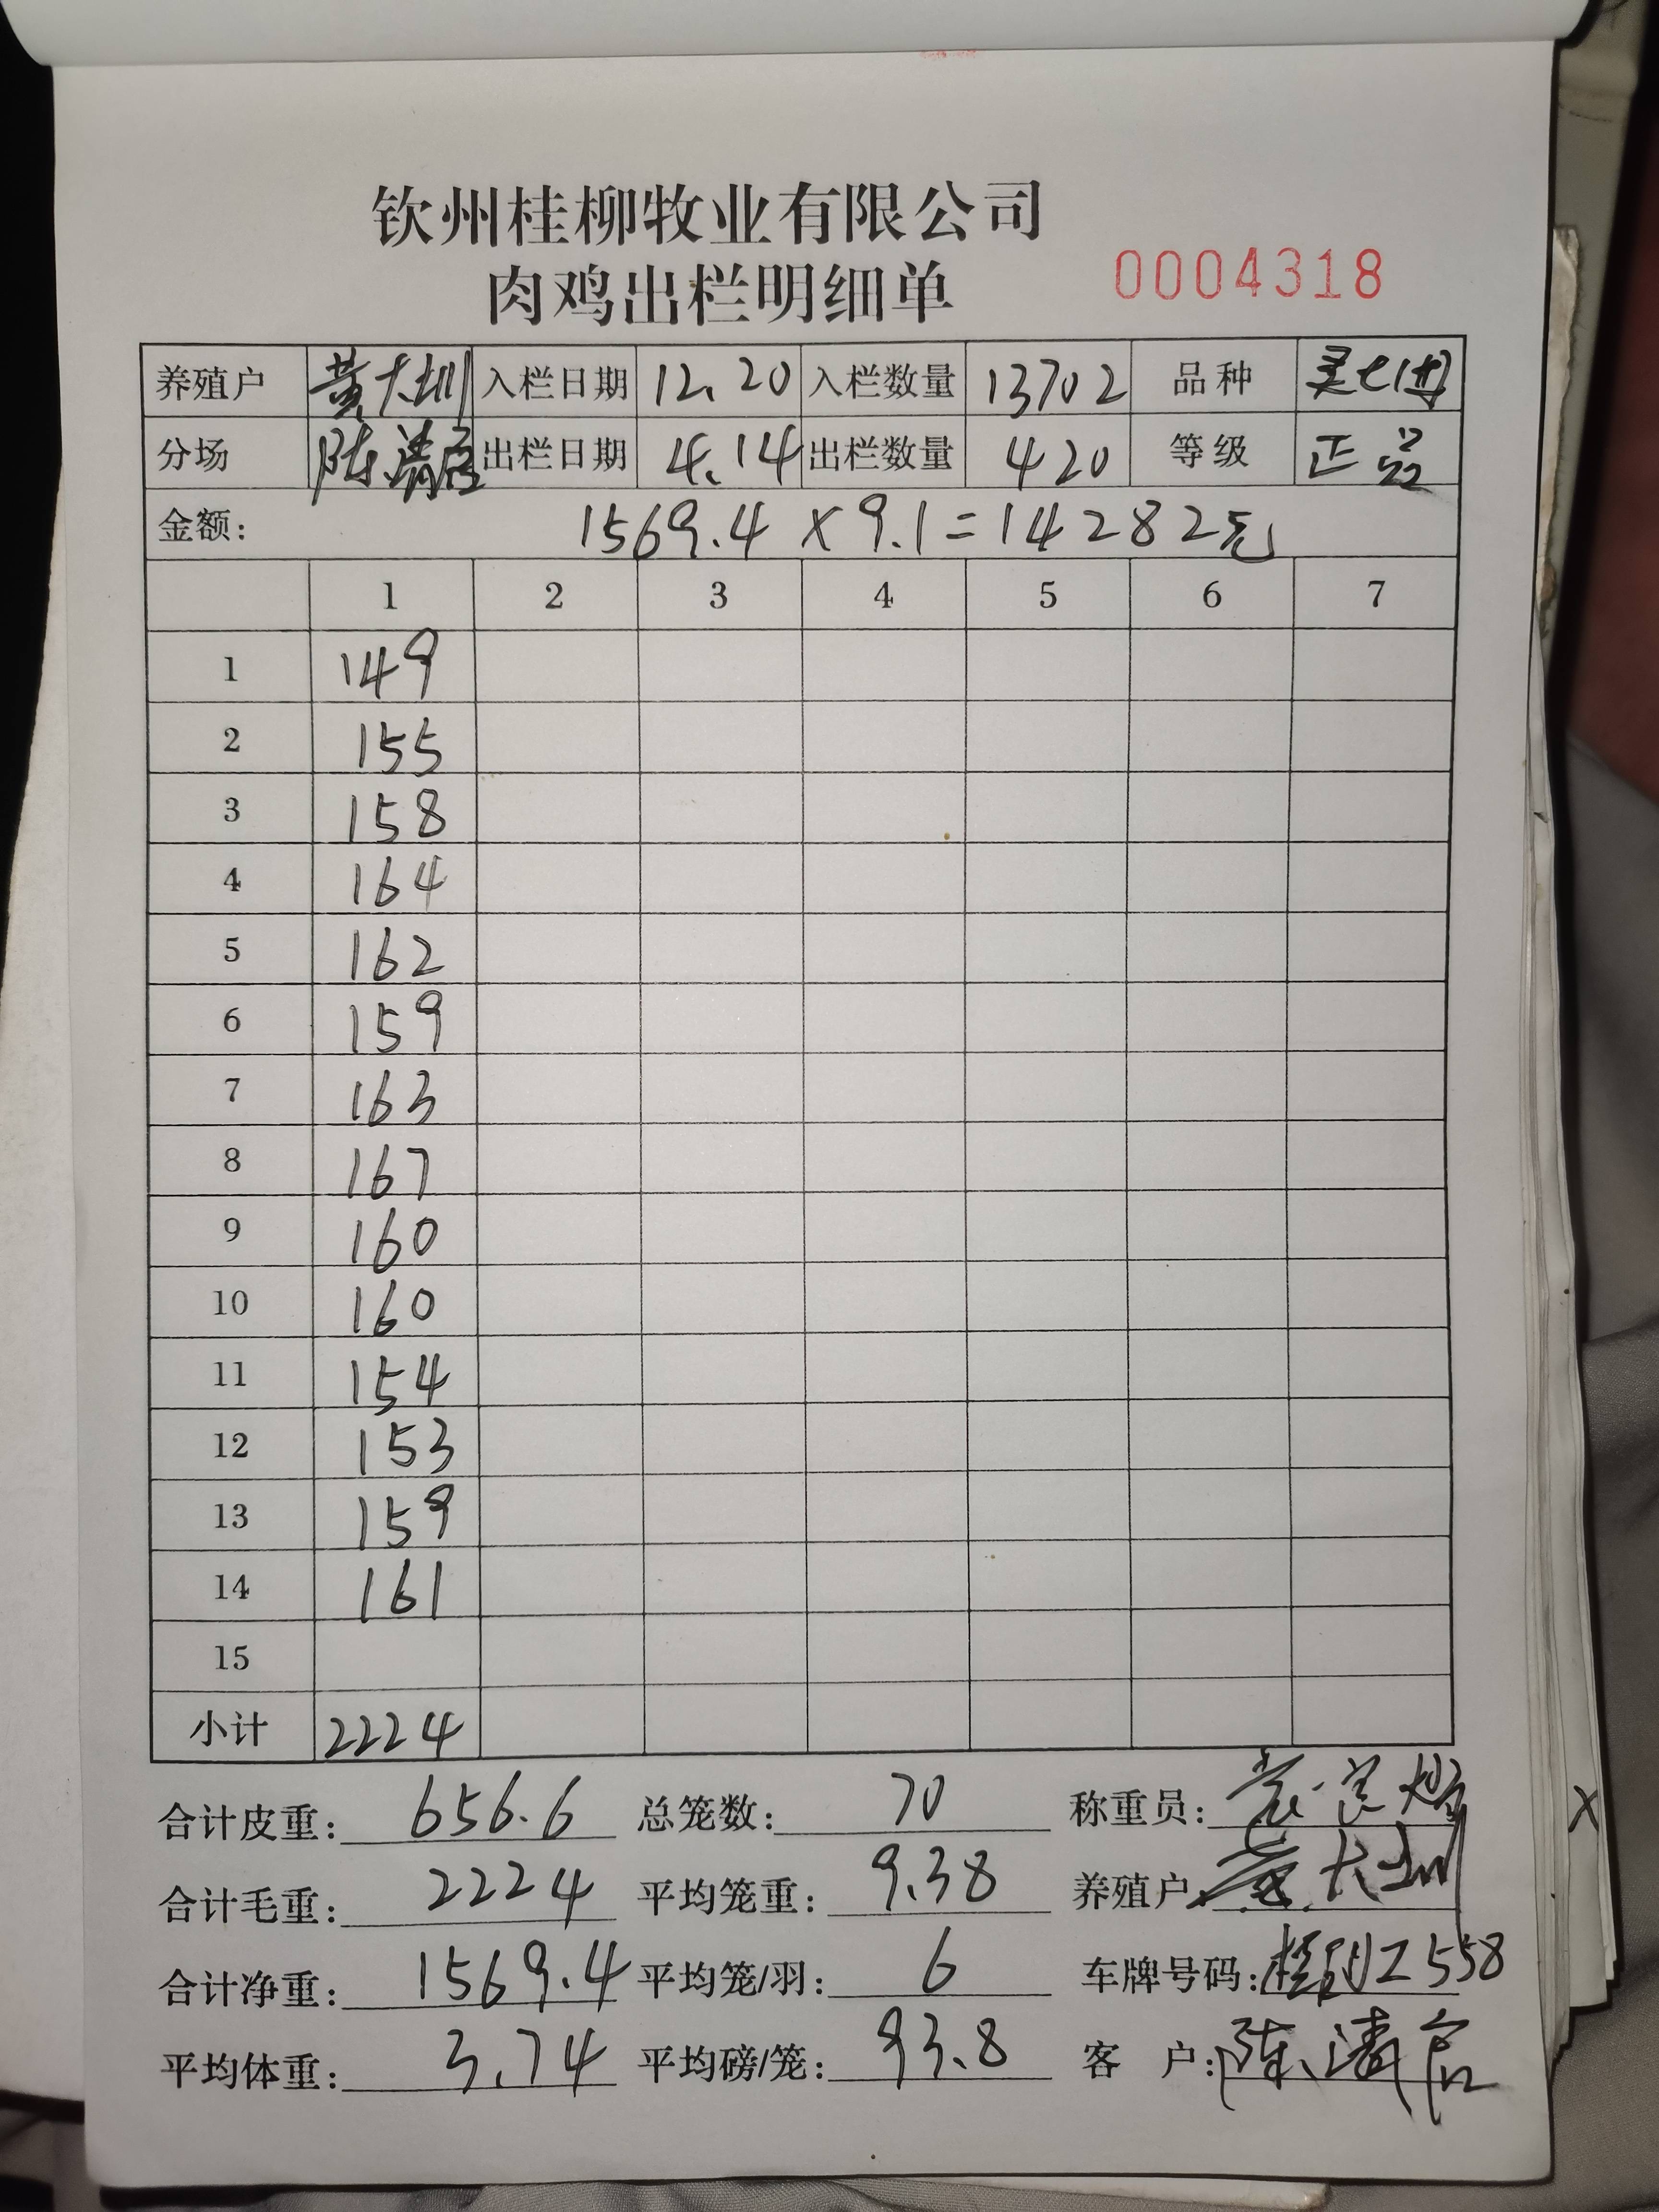 钦州桂柳牧业有限公司
肉鸡出栏明细单 0004318
养殖户 黄大圳 入栏日期 12.20 入栏数量 13702 品种
分场 陈清 出栏日期 4.14 出栏数量 420 等级 正品
金额: 1569.4 × 9.1 = 14282元
1 2 3 4 5 6 7
1 149
2 155
3 158
4 164
5 162
6 159
7 163
8 167
9 160
10 160
11 154
12 153
13 159
14 161
15
小计 2224
合计皮重: 656.6 总笼数: 70 称重员:
合计毛重: 2224 平均笼重: 9.38 养殖户: 黄大圳
合计净重: 1569.4 平均笼/羽: 6 车牌号码: Z558
平均体重: 3.74 平均磅/笼: 93.8 客 户: 陈清